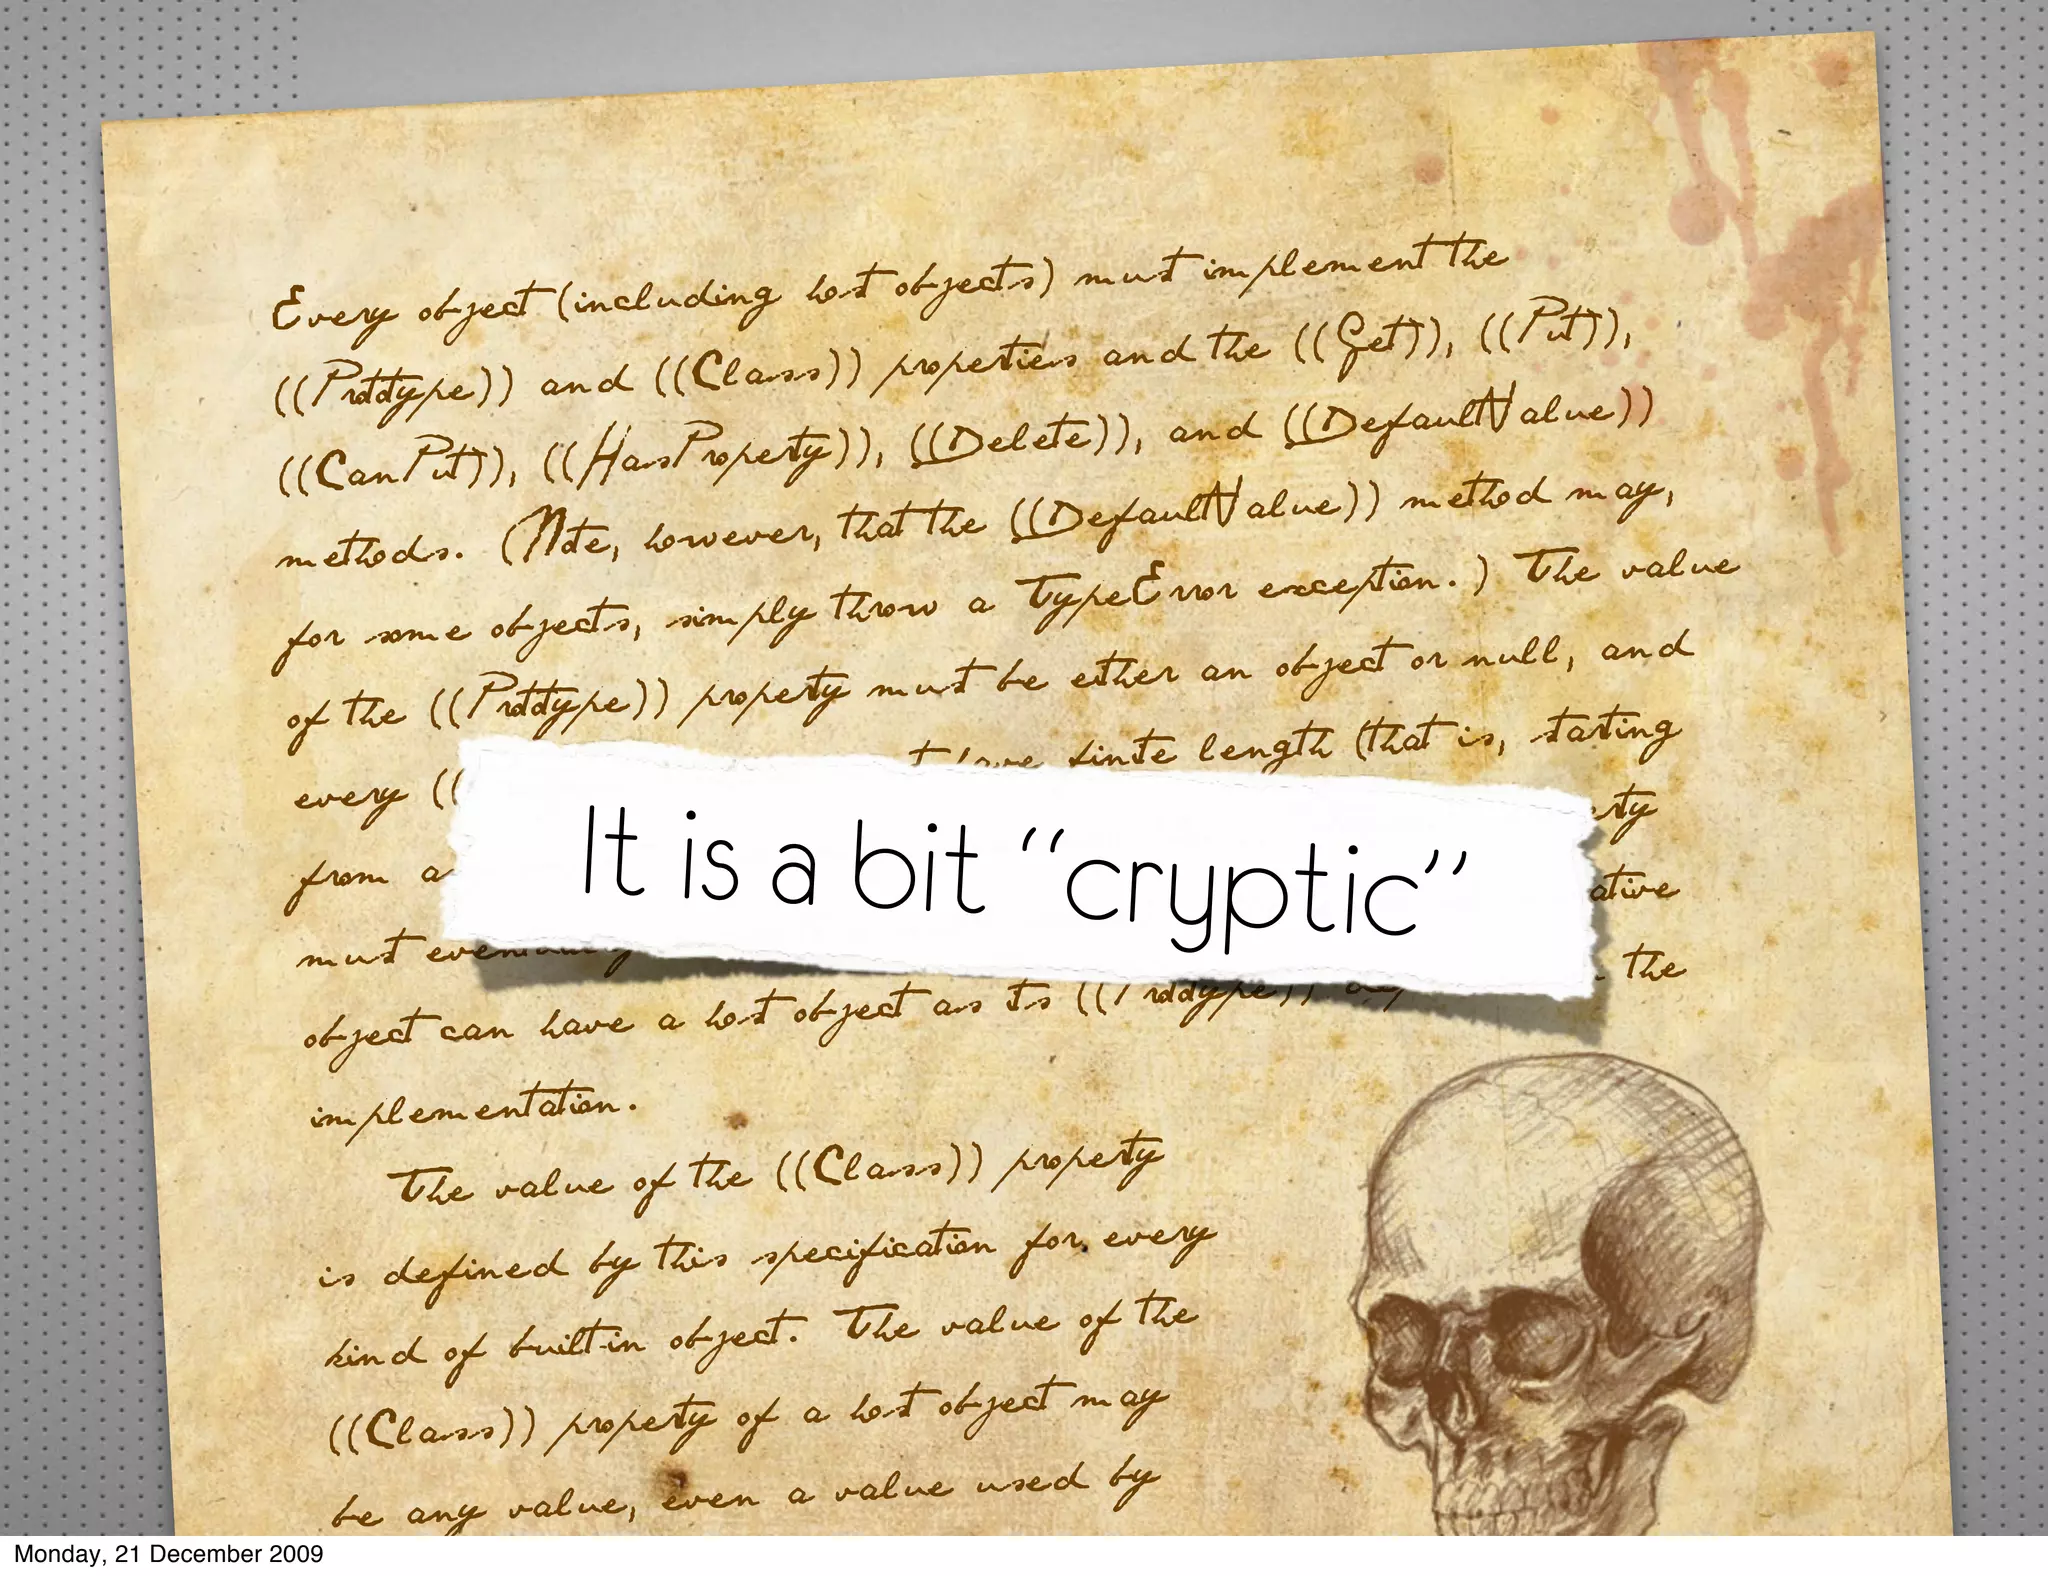 Every object (including host objects) must implement the
((Prototype)) and ((Class)) properties and the ((Get)), ((Put)),
((CanPut)), ((HasProperty)), ((Delete)), and ((DefaultValue))
methods. (Note, however, that the ((DefaultValue)) method may,
for some objects, simply throw a TypeError exception.) The value
of the ((Prototype)) property must be either an object or null, and
every (( have finite length (that is, starting
from a
It is a bit “cryptic”
must eventually the
object can have a host object as its ((Prototype))
implementation.
The value of the ((Class)) property
is defined by this specification for every
kind of built-in object. The value of the
((Class)) property of a host object may
be any value, even a value used by
Monday, 21 December 2009